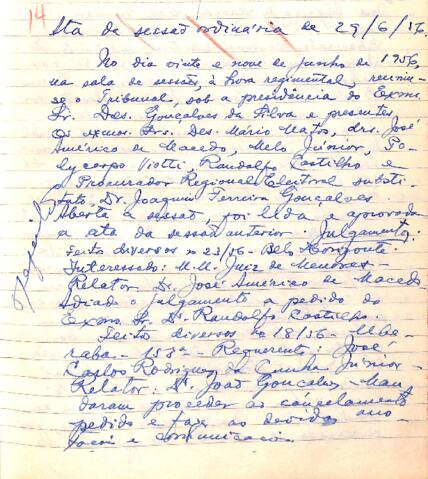 14
Ata da sessão ordinária de 29/6/56.
No dia vinte e nove de junho de 1956,
na sala de sessões, à hora regimental, reuniu-
se o Tribunal, sob a presidência do Exmo.
Sr. Des. Gonçalves da Silva e presentes
os exmos. Srs. Des. Mário Matos, drs. José
Américo de Macedo, Melo Júnior, Po-
lycarpo Viotti, Randolfo Castilho e
o Procurador Regional Eleitoral substi-
tuto, Dr. Joaquim Ferreira Gonçalves
Aberta a sessão, foi lida e aprovada
a ata da sessão anterior. Julgamentos:
Feito diversos nº 23/56 - Belo Horizonte
Interessado: M.M. Juiz de Menores -
Relator Dr. José Américo de Macedo
Adiado o julgamento a pedido do
Exmo. Sr. Dr. Randolfo Castilho.
Feito diversos nº 18/56 - Ube-
raba - 153ª - Requerente: José
Carlos Rodrigues da Cunha Júnior -
Relator: Dr. João Gonçalves - Man-
daram proceder ao cancelamento
pedido e fazer as devidas ano-
tações e comunicação.